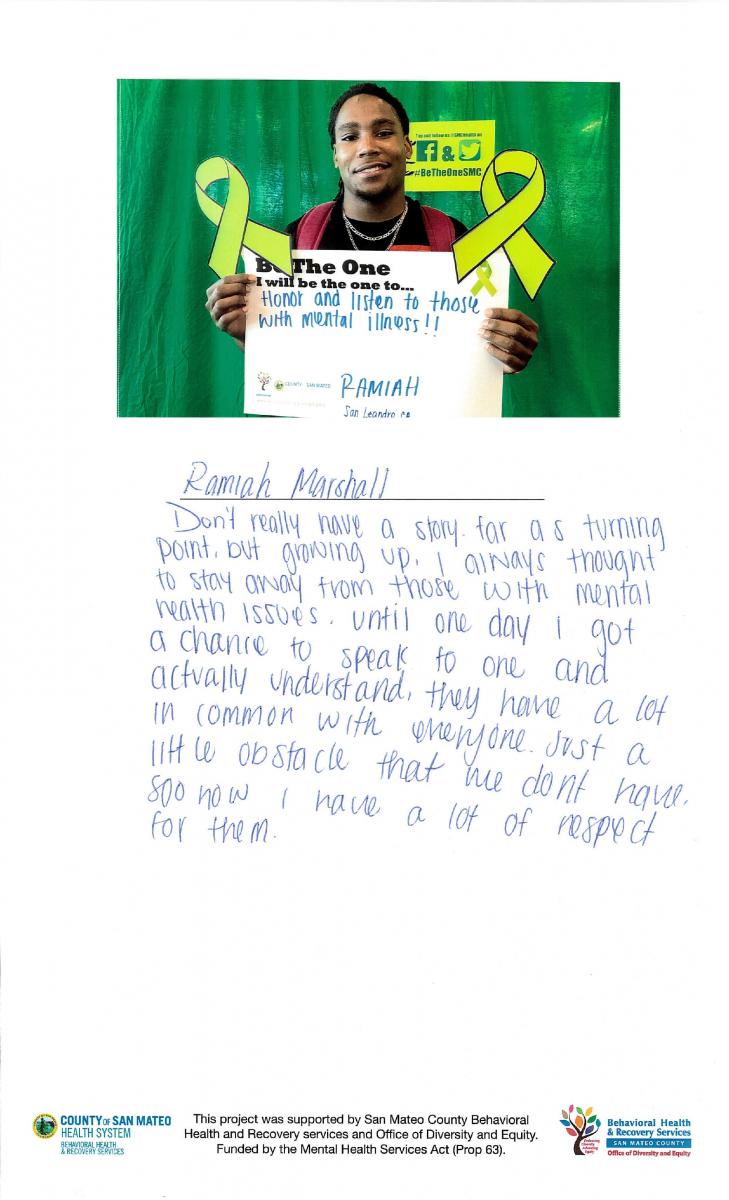 Tag and follow us @SMCHealth on
f &
#BeTheOneSMC
Be The One
I will be the one to...
Honor and listen to those
with mental illness!!
COUNTY OF SAN MATEO
RAMIAH
San Leandro ca
Ramiah Marshall
Don't really have a story. far as turning
point, but growing up, I always thought
to stay away from those with mental
health issues. until one day I got
a chance to speak to one and
actually understand, they have a lot
in common with everyone. Just a
little obstacle that we dont have.
soo now I have a lot of respect
for them.
COUNTY OF SAN MATEO
HEALTH SYSTEM
BEHAVIORAL HEALTH
& RECOVERY SERVICES
This project was supported by San Mateo County Behavioral
Health and Recovery services and Office of Diversity and Equity.
Funded by the Mental Health Services Act (Prop 63).
Behavioral Health
& Recovery Services
SAN MATEO COUNTY
Office of Diversity and Equity
Embracing
Diversity
Advancing
Equity